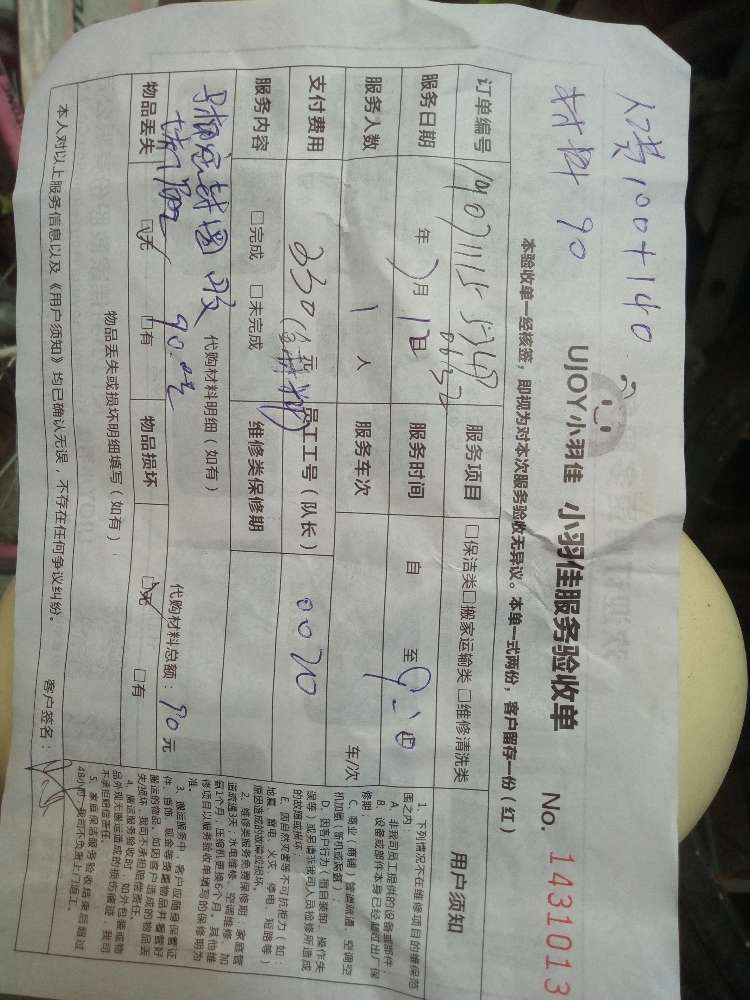 人工费100+140
材料 90
UJOY小羽佳 小羽佳服务验收单
No. 1431013
本验收单一经核签，即视为对本次服务验收无异议。本单一式两份，客户留存一份（红）
订单编号
服务项目 □保洁类□搬家运输类 □维修清洗类
服务日期 年 月 日 服务时间 自 至
服务人数 1 人 服务车次 车/次
支付费用 330 元 员工工号（队长） 0070
服务内容 □完成 □未完成 维修类保修期
代购材料明细（如有）
90.00元
代购材料总额：90元
物品丢失 □无 □有 物品损坏 □无 □有
物品丢失或损坏明细填写（如有）
本人对以上服务信息以及《用户须知》均已确认无误，不存在任何争议纠纷。
客户签名：
用户须知
1、下列情况不在维修项目的维保范围之内：
A、非我司员工提供的设备或部件；
B、设备或部件本身已经超过出厂保修期；
C、商业（商铺）管道疏通，空调空机加氟（新机或尿素）；
D、因客户行为（擅自装卸、操作失误等）或另请非我司人员检修所造成的故障或损坏；
E、因自然灾害等不可抗拒力（如：地震、雷电、火灾、停电、短路等）原因造成的故障或损坏。
2、维修类服务免费保修期：家庭管道疏通3天；水电维修、空调维修、加氟1个月；压缩机更换6个月。其他维修项目以服务验收单填写的保修期为准。
3、搬运服务中，客户应随身保管证件、首饰、现金等贵重物品并看管好搬运的物品，如因客户造成的物品丢失/损坏，我司不承担赔偿责任。
4、搬运服务验收时，如外包装或物品外观无搬运造成的损伤痕迹，我司不承担赔偿责任。
5、家庭保洁服务验收结束后超过48小时，我司不负责上门返工。